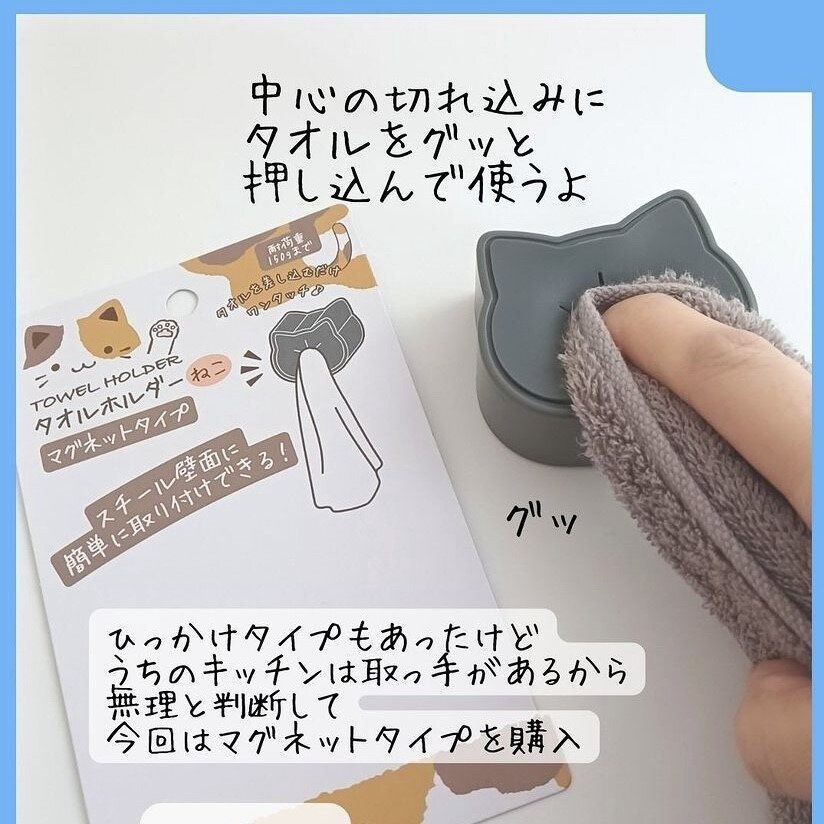 中心の切れ込みに
タオルをグッと
押し込んで使うよ
耐荷重
150gまで
タオルを差し込むだけ
ワンタッチ♪
TOWEL HOLDER
タオルホルダー ねこ
マグネットタイプ
スチール壁面に
簡単に取り付けできる！
グッ
ひっかけタイプもあったけど
うちのキッチンは取っ手があるから
無理と判断して
今回はマグネットタイプを購入